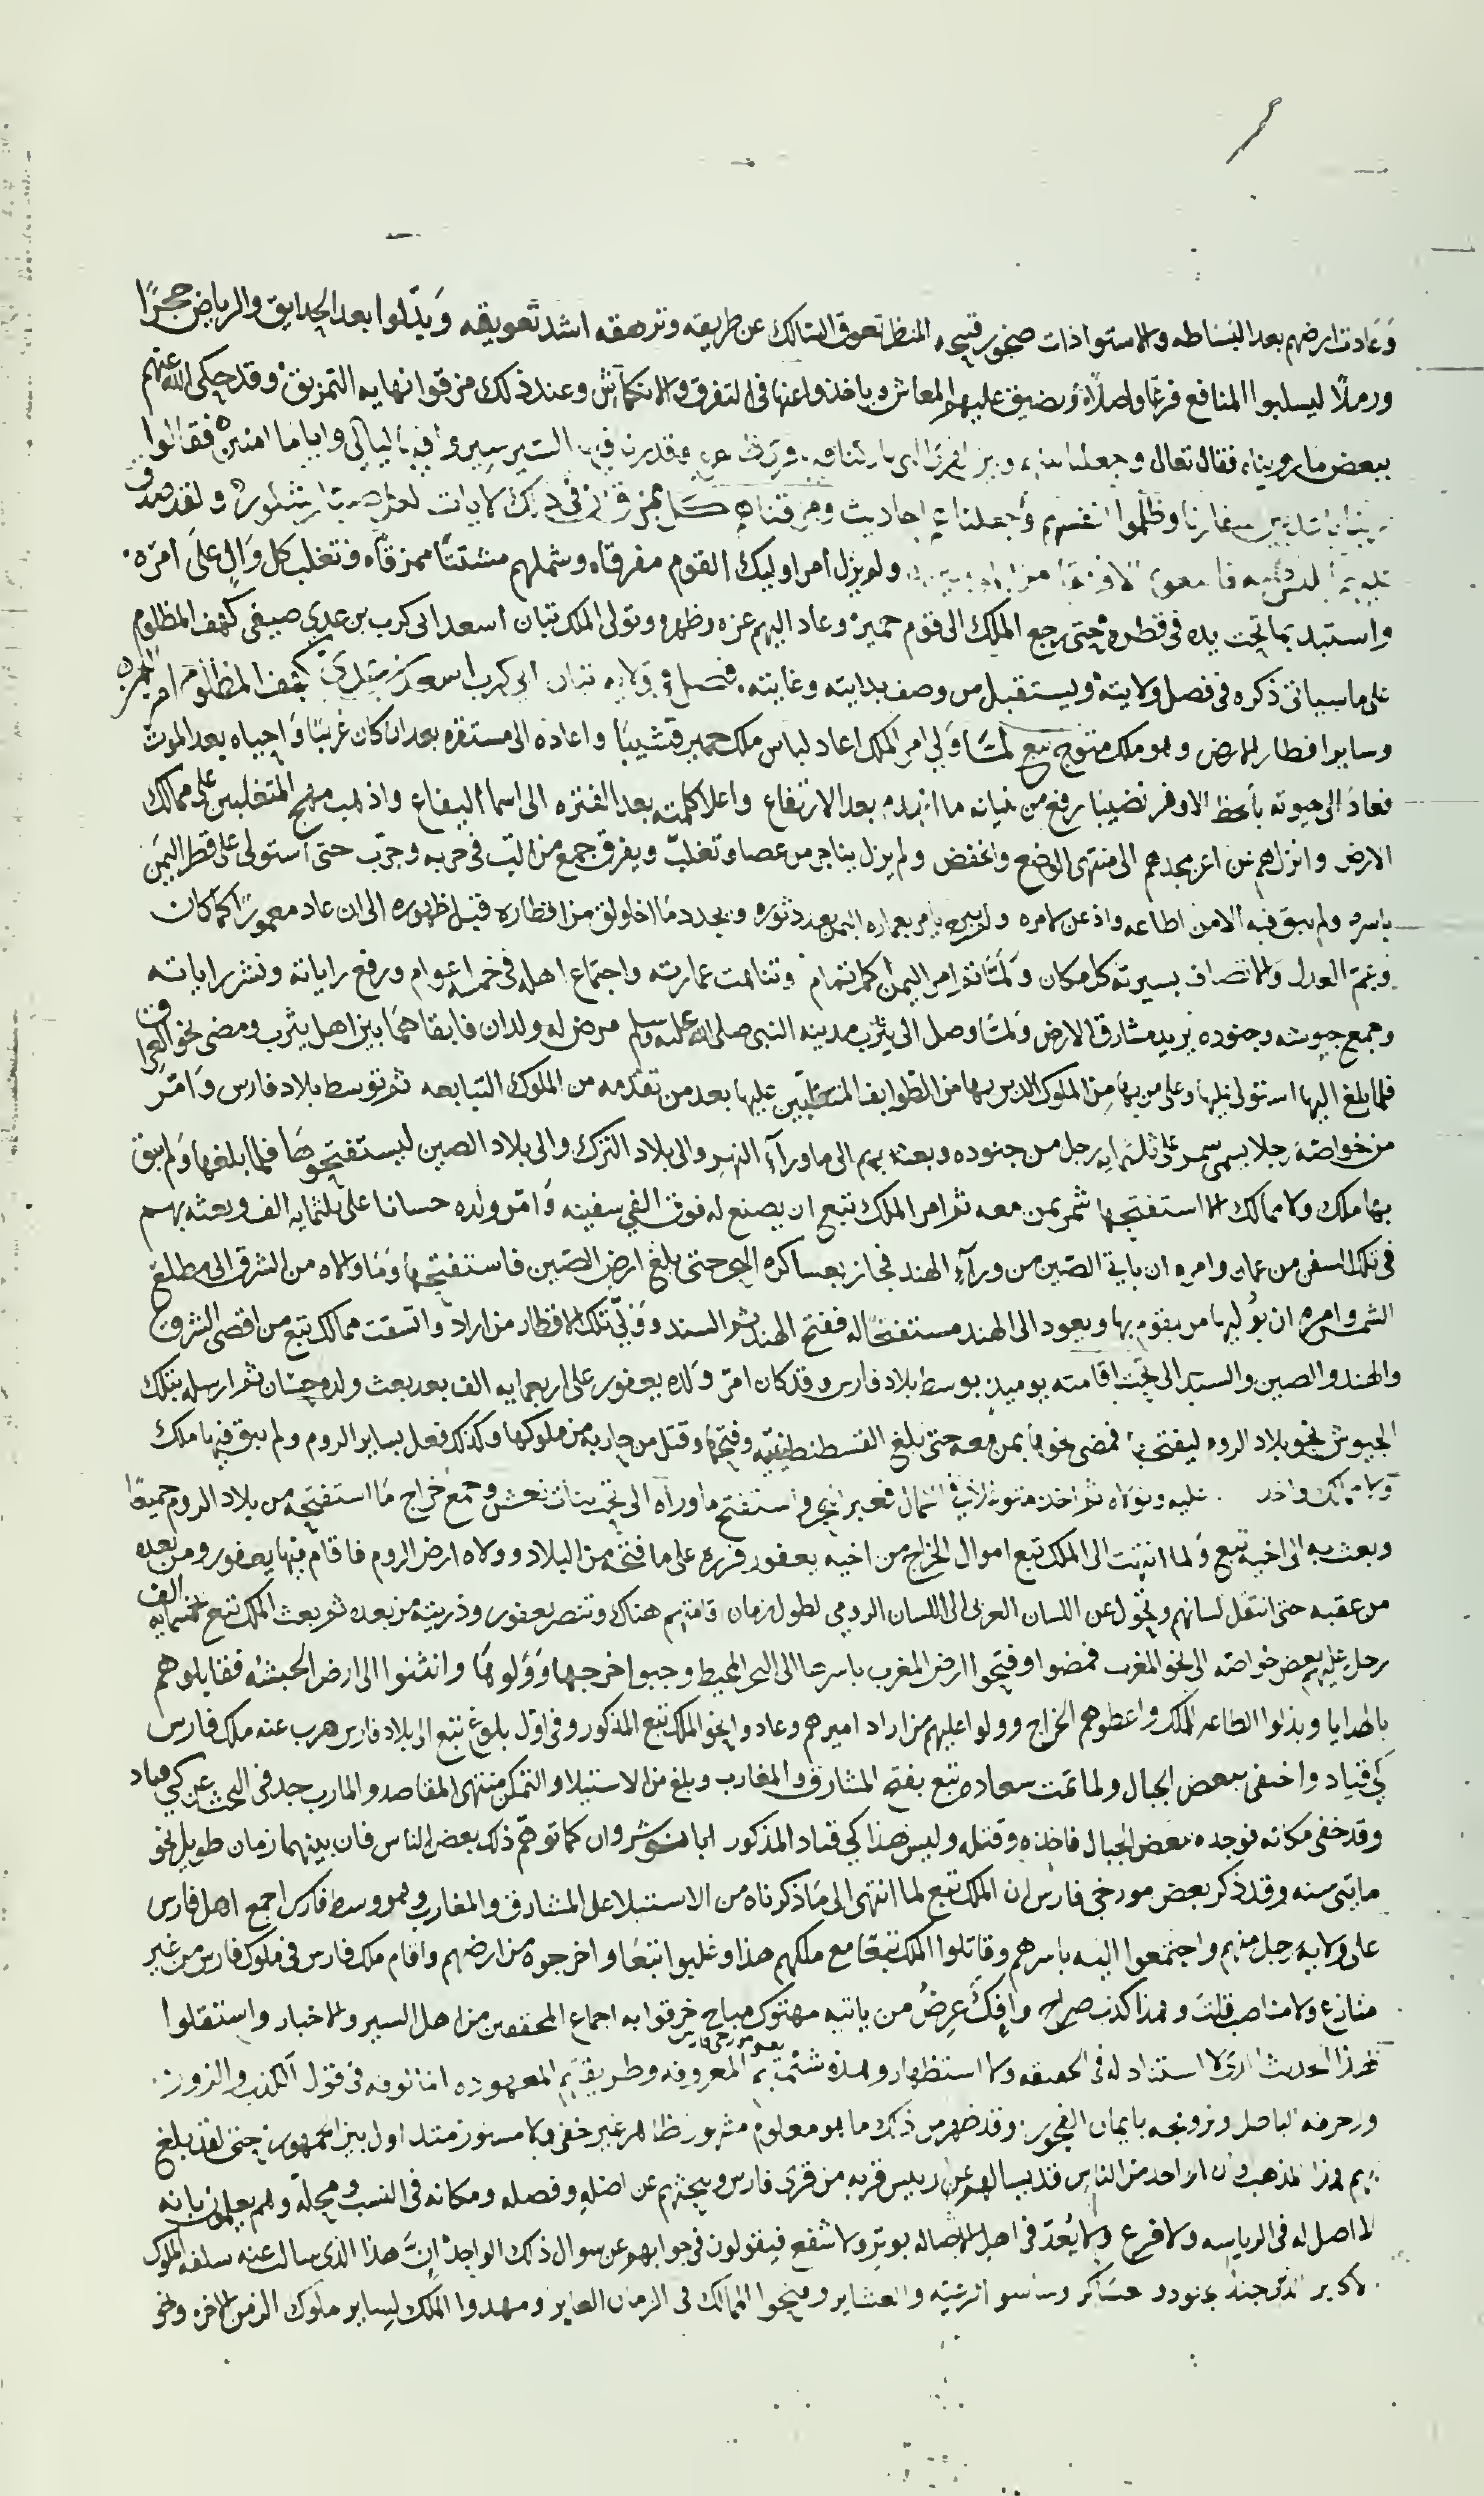 وَعَادت ارضهم بعد البساطه والاستواذات صخور قبيحه المنظر تعوق السالك عن طريقه وترهقه اشد تعويقه وَبدّلوا بعد الحدايق والرياض حجرًا
ورملاً ليسلبوا المنافع فرعًا واصلاً وتضيق عليهم المعاش وياخذوا عنها فى التفرق والانكماش وعند ذلك مزقوا نهايه التمزيق وقد حكى الله عنهم
ببعض ما رويناه فقال تعالى وجعلنا بينهم وبين القرى التى باركنا فيها قرى ظاهره وقدرنا فيها السير سيروا فيها ليالى واياما امنين فقالوا
ربنا باعد بين اسفارنا وظلموا انفسهم فجعلناهم احاديث ومزقناهم كل ممزق ان فى ذلك لايات لكل صبار شكور ولقد صدق
عليهم ابليس ظنه فاتبعوه الا فريقا من المومنين ولم يزل امر اوليك القوم مفرقًا وشملهم مشتتًا ممزقًا وتغلب كل وَالٍ على امره
واستبد بما تحت يده فى قطره حتى رجع الملك الى قوم حمير وعاد اليهم عزه وظهر وتولى الملك تبان اسعد ابى كرب بن عدى صيفى كهف المظلوم
على ما سياتى ذكره فى فصل ولايته ويستقبل من وصف بدايته وغايته فصل فى ولايه تبان ابى كرب اسعد بن عدى كهف المظلوم امر
وساير اقطار الارض وهو ملك متوج تبع لمّا وَلى امر الملك اعاد لباس ملك حمير قشيبًا واعاده الى مستقره بعد ان كان غريبًا وَاحياه بعد الموت
فعادَ الى حيوته بالحظ الاوفر نصيبا رفع من بنيانه ما انهدم بعد الارتفاع واعلا كلمته بعد الفتره الى اسما اليفاع واذهب مهج المتغلبين على ممالك
الارض وانزلهم عن اعز مجدهم الى منتهى الوضع والخفض ولم يزل يناجى من عصا وتغلبّ ويفرق جمع من الّب فى حربه وحزّب حتى استولى على قطر اليمن
باسره ولم يبق فيه الا من اطاعه واذعن لامره ولم يبرح يامر بعماره اليمن بعد دثوره ويجدد ما اخلولق من اقطاره قبل ظهوره الى ان عاد معمورًا كما كان
وعمّ العدل والانصاف بسيرته كل مكان وَلمّا تم امر اليمن اكمل تمام وتناهت عمارته واجتماع اهله فى خمسه اعوام ورفع راياته ونشر راياته
وجمع جيوشه وجنوده يريد مشارق الارض وَلمّا وصل الى يثرب مدينه النبى صلى الله عليه وسلم مرض له ولدان فابقاهمَا بين اهل يثرب ومضى نحو العراق
فلما بلغ اليها استولى عليها وعلى من بها من الملوك الذين بها من الطوايف المتغلّبين عليها بعد من تقدمه من الملوك التبابعه ثم توسط بلاد فارس وَامّر
من خواصّه رجلا يسمى شمر على ثلثمايه رجل من جنوده وبعث بهم الى ما ورآء النهر والى بلاد الترك والى بلاد الصين ليستفتحوهَا فلما بلغها وَلم يبق
بها ملك ولا ممالك الا استفتحها شمر بمن معه ثم امر الملك تبع ان يصنع له فوق الفى سفينه وَامّر ولده حسانا على ثلثمايه الف وبعثه بهم
فى تلك السفن من عمان وامره ان ياتى الصّين من ورآء الهند فجاز بعساكره البحر حتى بلغ ارض الصّين فاستفتحهَا وَمَا والاه من الشرق الى مطلع
الشمس وامره ان يوَليها من يقوم بها ويعود الى الهند مستفتحًا له ففتح الهند ثم السند ووَلّى تلك الاقطار من اراد واتسقت ممالك تبع من اقصى الشرق
والهند والصين والسند الى تحت اقامته يوميذ بوسط بلاد فارس وقد كان امّر وَلده يعفور على اربعمايه الف بعد بعث ولده حسّان ثم ارسله بتلك
الجيوش نحو بلاد الروم ليفتحها فمضى نحوها بمن معه حتى بلغ القسطنطينيّه وفتحهَا وقتل من حاربه من ملوكها وكذلك فعل بساير الروم ولم يبق فيها ملك
ولا مالك واحد عليه وتولاه ثم اخذ متوجها فى الشمال فعبر البحر واستفتح ما ورآه الى تحت بنات نعش وجمع خراج مَا استفتحه من بلاد الروم جميعًا
وبعث به الى اخيه تبع وَلما انتهت الى الملك تبع اموال الخراج من اخيه يعفور قرره على ما فتحه من البلاد وولاه ارض الروم فاقام فيها يعفور ومن بعده
من عقبه حتى انتقل لسانهم وتحوّل عن اللسان العربى الى اللسان الرومى لطول زمان اقامتهم هناك وتنصر يعفور وذريته من بعده ثم بعث الملك تبع خمسمايه الف
رجل عليهم بعض خواصّه الى نحو المغرب فمضوا وفتحوا ارض المغرب باسرها الى البحر المحيط وجبوا خرجهَا وَوَلوهَا وانثنوا الى ارض الحبشه فقابلوهم
بالهدايا وبذلوا الطاعه للملك واعطوهم الخراج وولوا عليهم من اراد اميرهم وعادوا نحو الملك تبع المذكور وفى اوّل بلوغ تبع الى بلاد فارس هرب عنه ملك فارس
كى قباد واختفى ببعض الجبال ولما تمت سعاده تبع بفتح المشارق والمغارب وبلغ من الاستيلا والتمكن منتهى المقاصد والمارب جد فى البحث عن كى قباد
وقد خفى مكانه فوجده ببعض الجبال فاخذه وقتله وليس هذا كى قباد المذكور ابا نوشروان كما توهمّ ذلك بعض الناس فان بينهما زمان طويل نحو
مايتى سنه وقد ذكر بعض مورخى فارس ان الملك تبع لما انتهى الى مَا ذكرناه من الاستيلا على المشارق والمغارب وهو وسط فارس اجمع اهل فارس
على ولايه رجل منهم واجتمعوا اليه باسرهم وقاتلوا الملك تبعًا مع ملكهم هذا وغلبوا تبعًا واخرجوه من ارضهم واقام ملك فارس فى ملوك فارس من غير
منازع ولا مناصب قلت وهذا كذب صراح وَافك عِرضُ من ياتيه مهتوك مباح خرقوا به اجماع المحققين من اهل السير والاخبار واستقلوا
بهذا الحديث الذى لا استناد له فى الحقيقه ولا استظهار وهذه شنشنتهم المعروفه وطريقتهم المعهوده المالوفه فى قول الكذب والزور
وزخرفه الباطل وترويجه بايمان الفجور وقد ظهر من ذلك ما هو معلوم مشهور ظاهر غير خفى ولا مستور متداول بين الجمهور حتى لقد بلغ
بهم هذا المذهب وان الواحد من الناس قد يسالهم عن رييس قريه من قرى فارس ويبحثهم عن اصله وفصله ومكانه فى النسب ومحله وهم يعلمون بانه
لا اصل له فى الرياسه ولا فرع ولا يُعدّ فى اهل الاصاله بوترٍ ولا شفع فيقولون فى جوابهم عن سوال ذلك الواحد اِنَّ هذا الذى سالت عنه سلفه الملوك
الاكابر الذين جندوا الجنود والعساكر وساسوا الرعيّه والعشاير وفتحوا الممالك فى الزمان الغابر ومهدوا الملك لساير ملوك الزمن الاخر ونحو